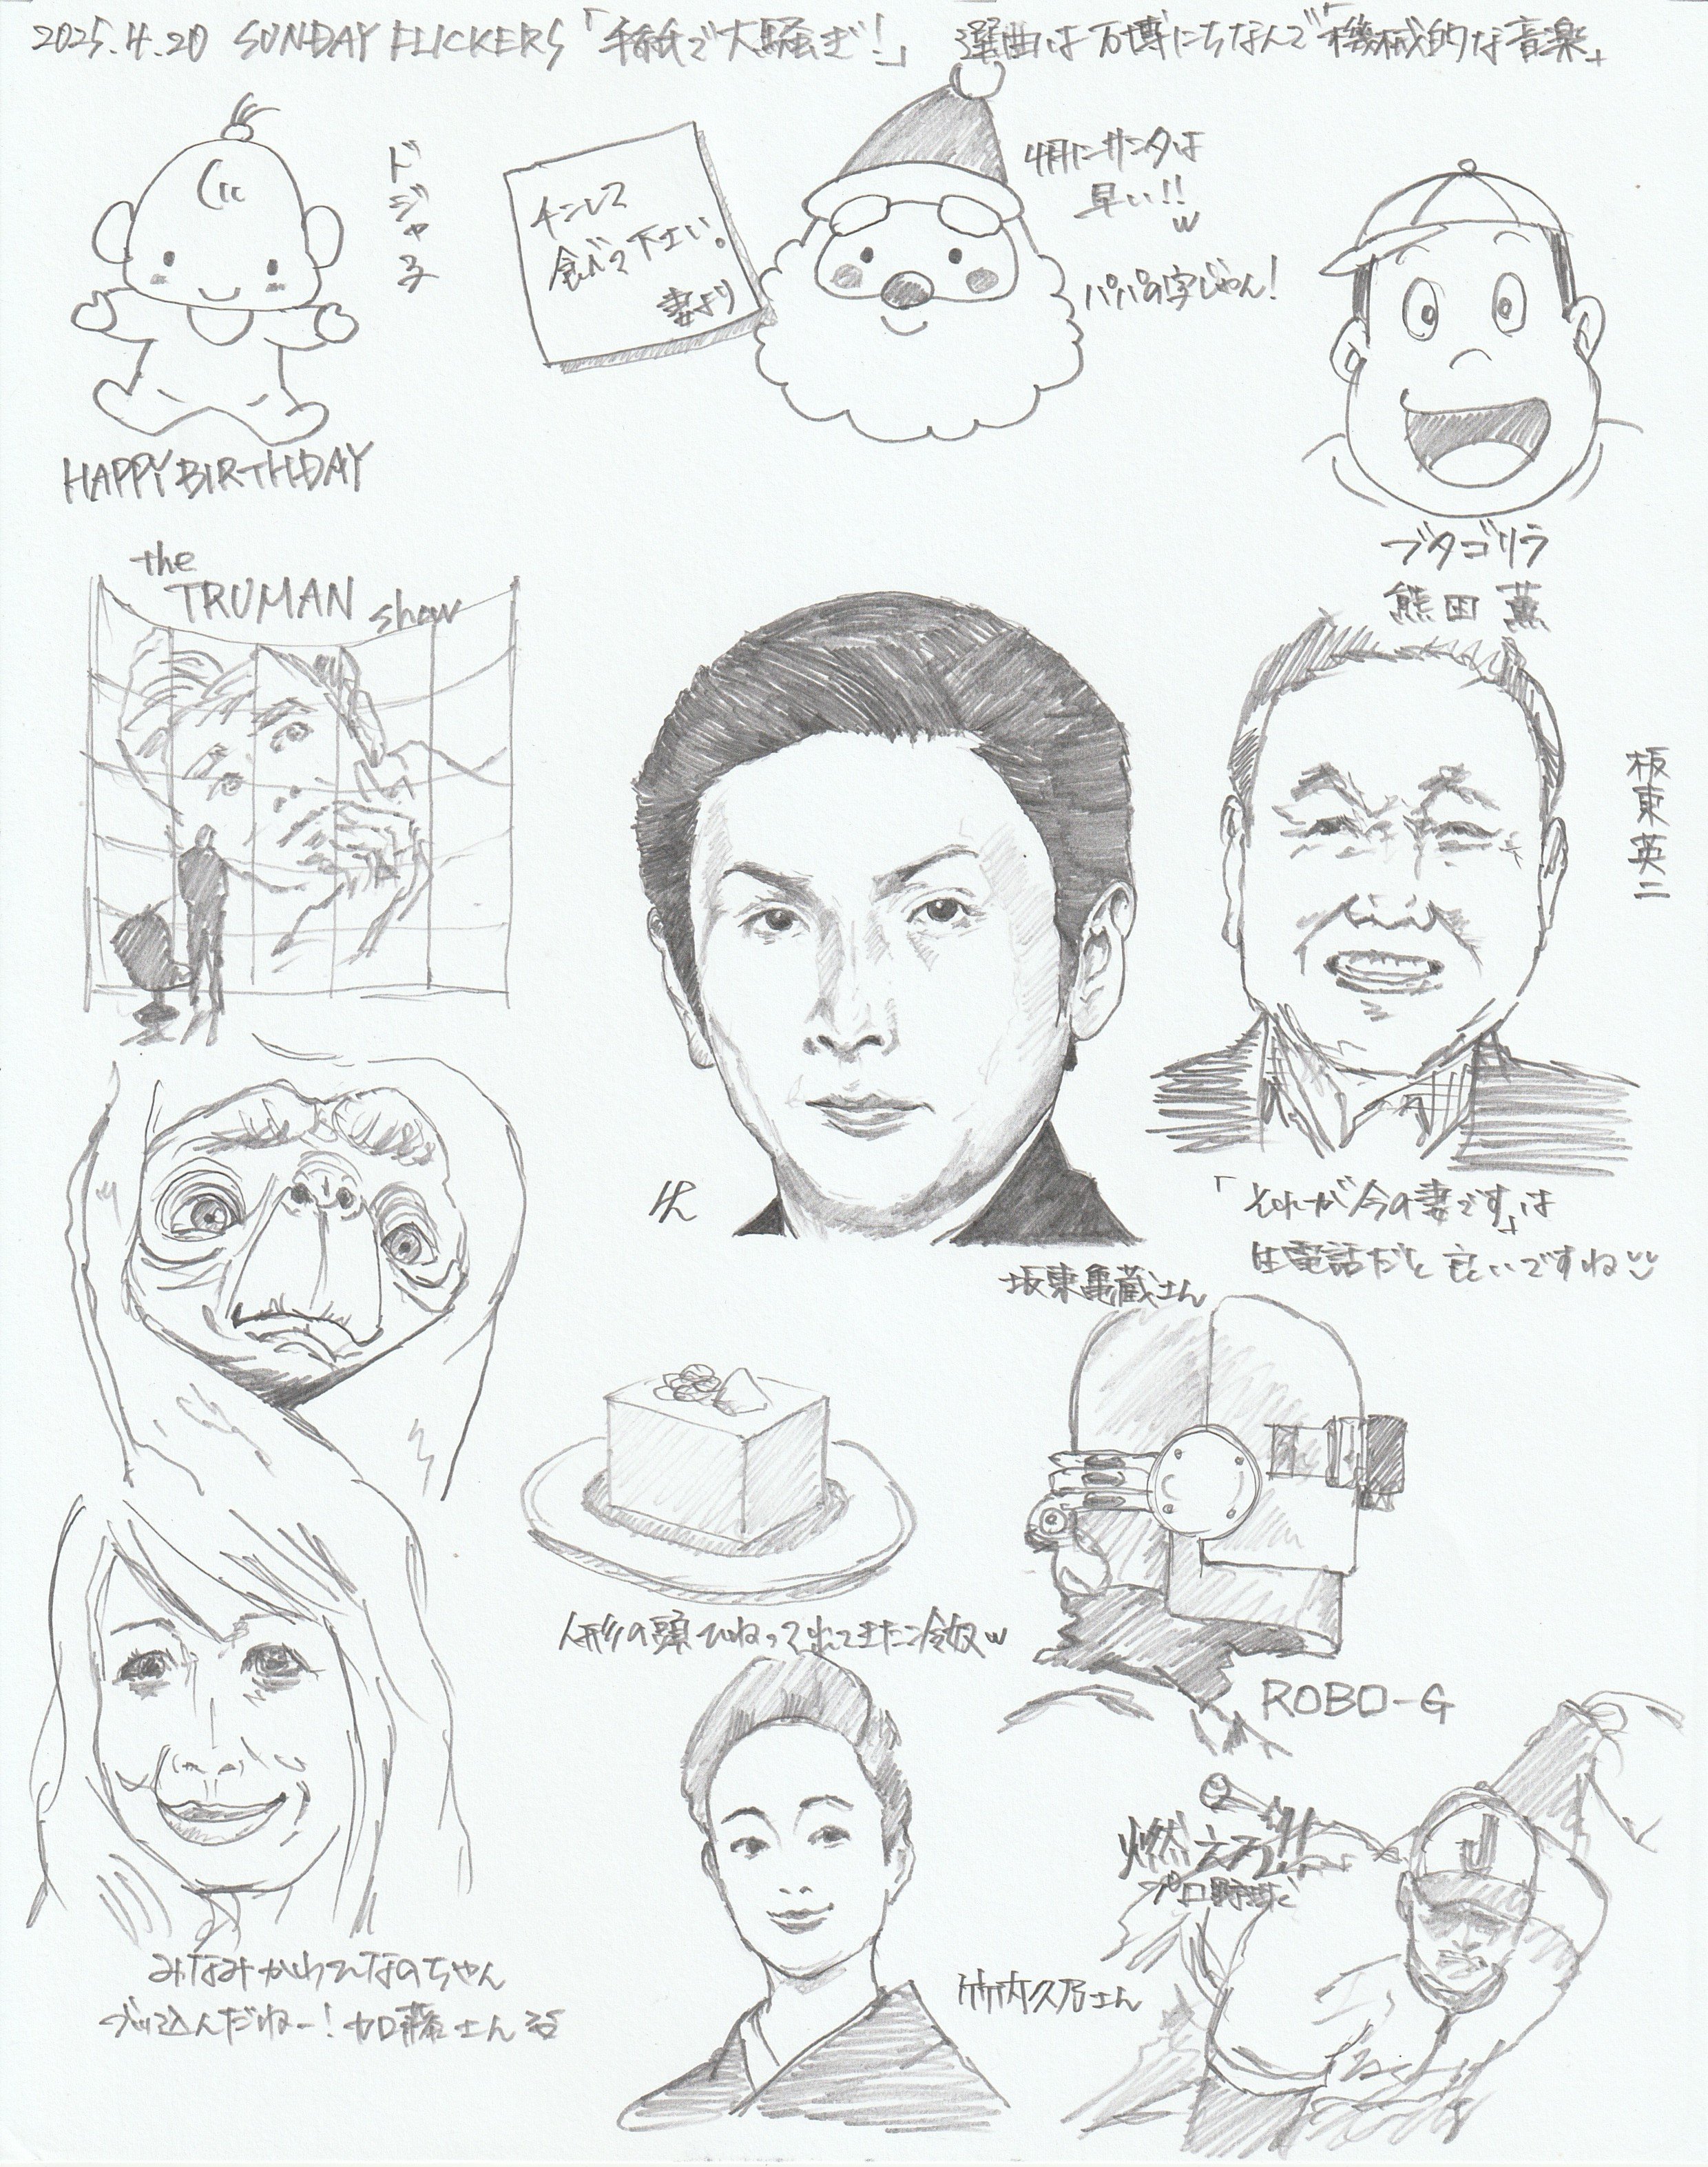 2025.4.20 SUNDAY FLICKERS「手紙で大騒ぎ!」 選曲は万博にちなんで「機械的な音楽」
ドジャ子
HAPPY BIRTHDAY
チンして
食べて下さい。
妻より
4月にサンタは
早い!!w
パパの字じゃん!
ブタゴリラ
熊田薫
the
TRUMAN show
板東英二
「それが今の妻です」は
生電話だと良いですね
坂東亀蔵さん
人形の頭ひねって出てきた冷奴w
ROBO-G
燃えろ!!
プロ野球
竹内久乃さん
みなみかわひなのちゃん
ブッ込んだねー!加藤さん